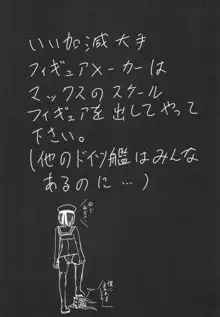 いい加減大手
フィギュアメーカーは
マックスのスケール
フィギュアを出してやって
下さい。
(他のドイツ艦はみんな
あるのに…)